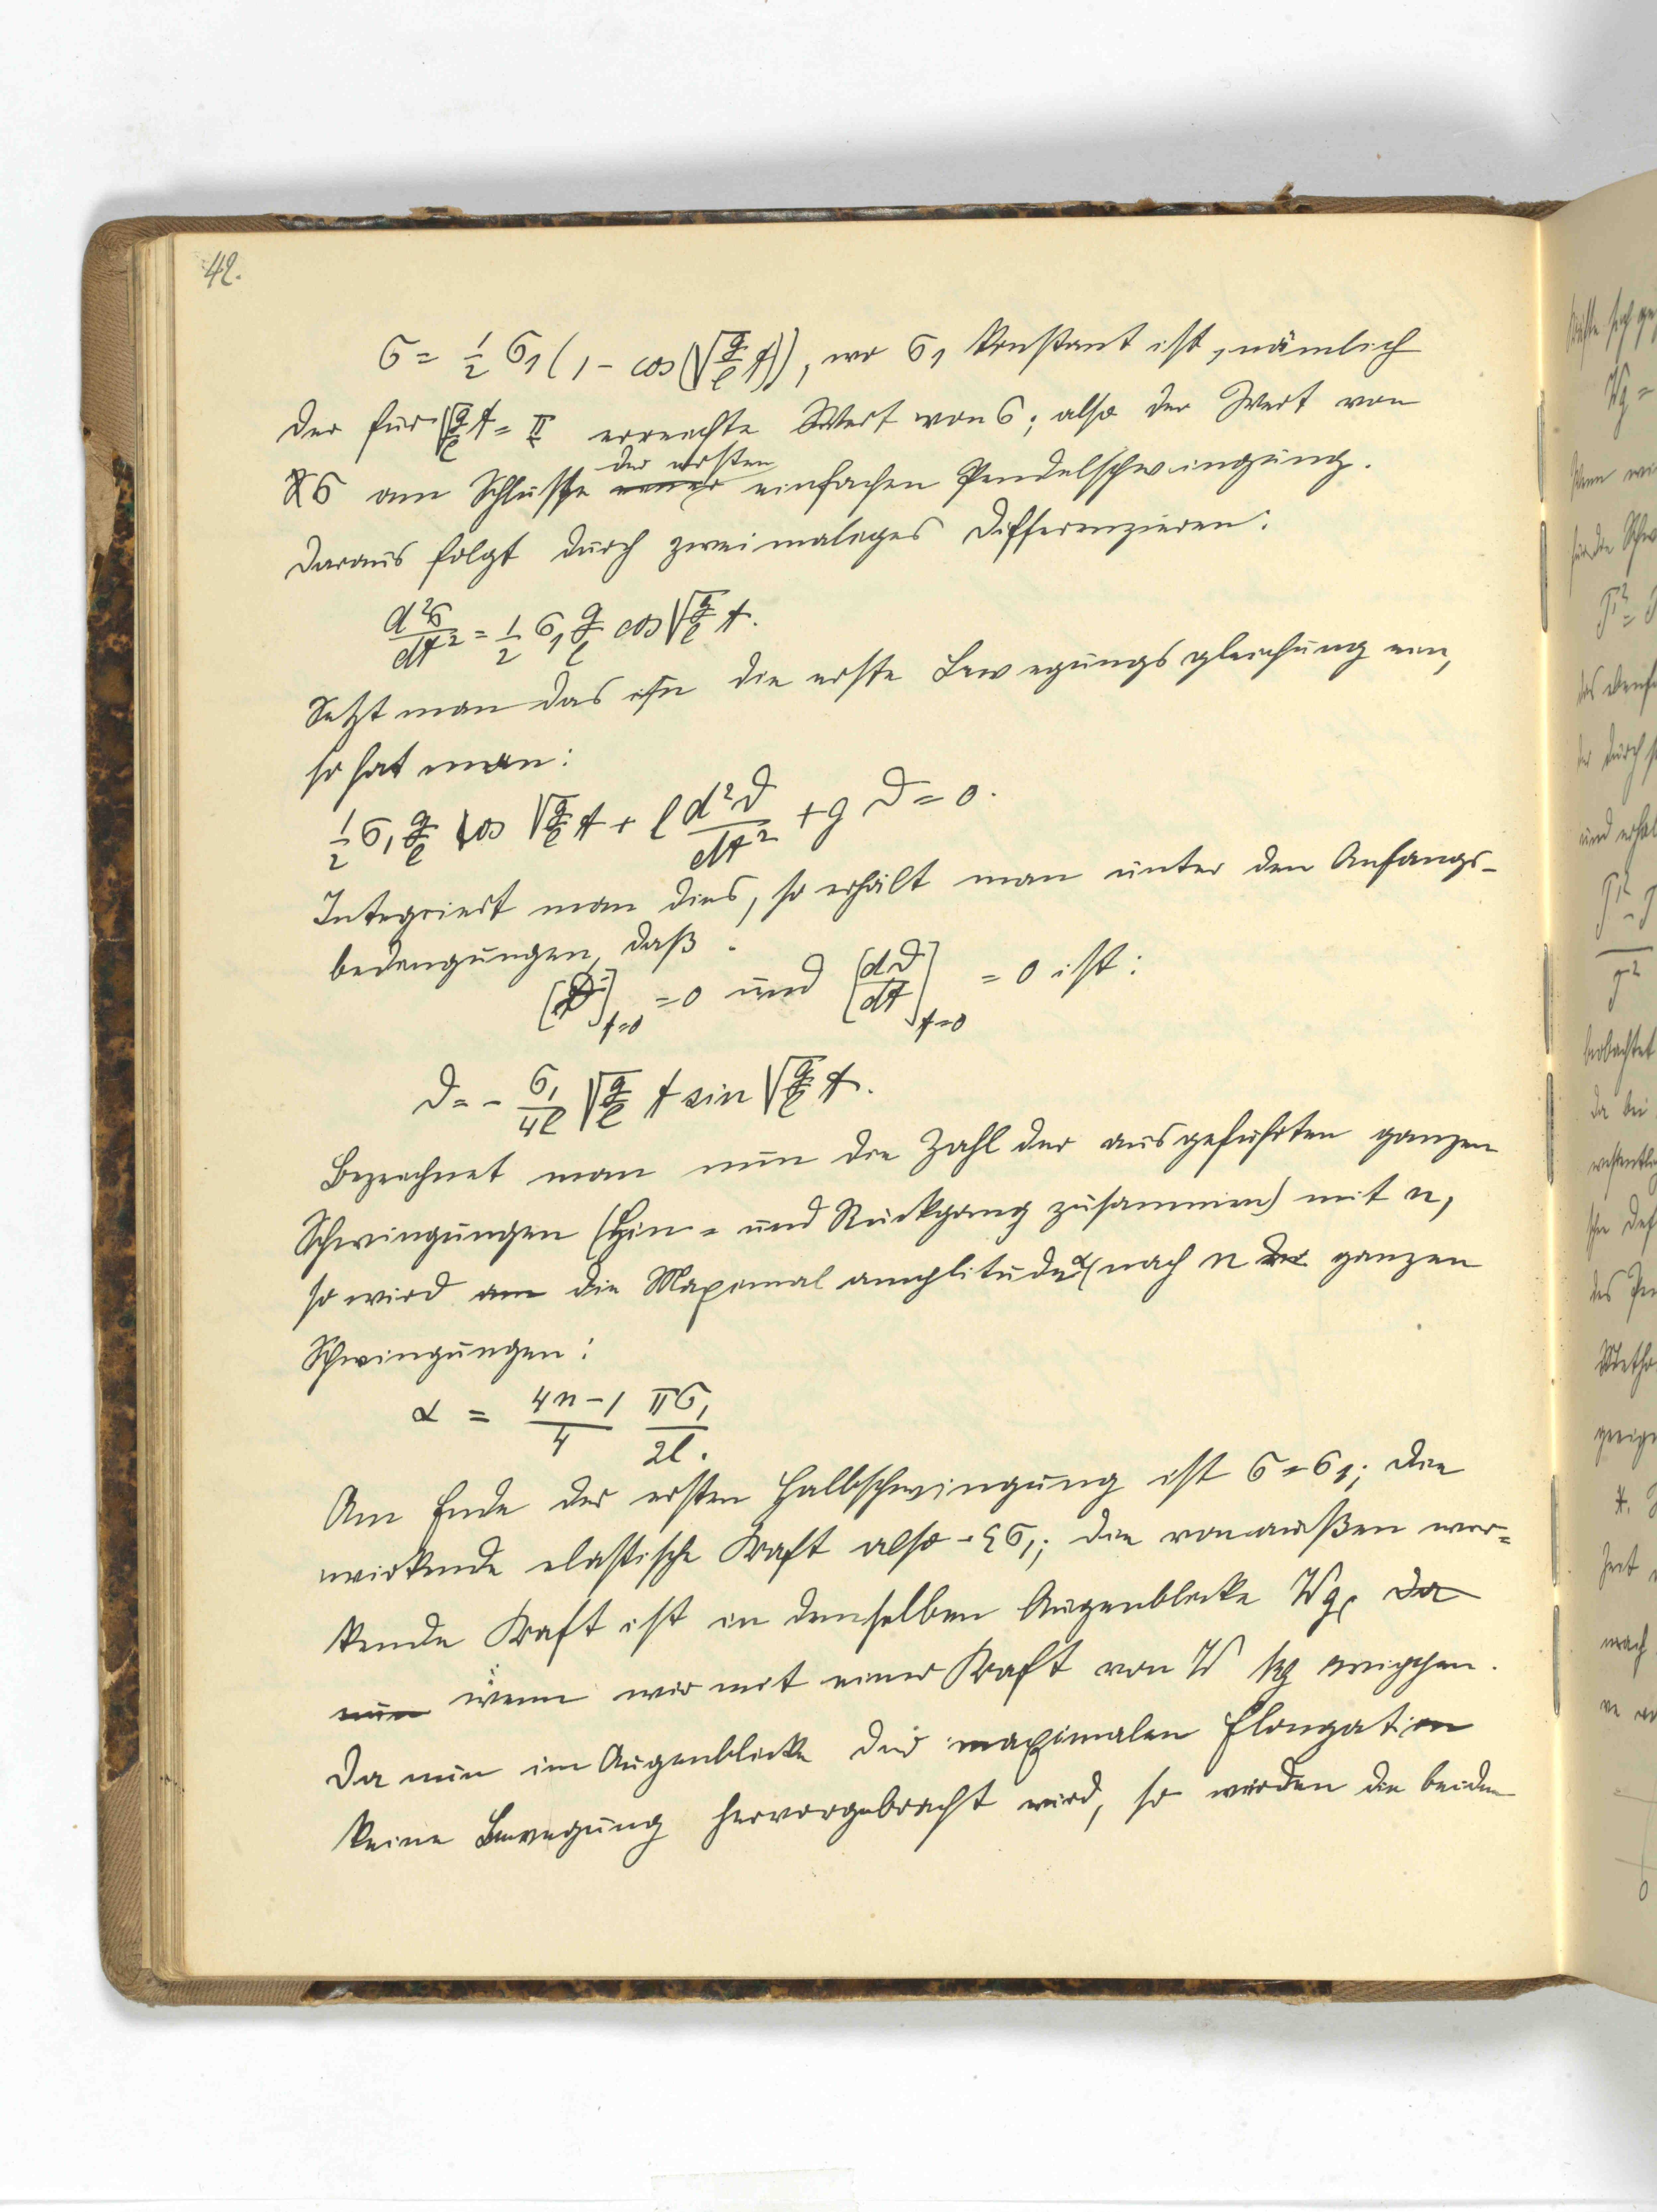 42.
σ = 1/2 σ₁ (1 - cos(√(g/l) t)), wo σ₁ Konstant ist, nämlich
der für √(g/l) t = π erreichte Wert von σ; also der Wert von
σ am Schlusse der ersten einfachen Pendelschwingung.
Daraus folgt durch zweimaliges Differenzieren:
d²σ/dt² = 1/2 σ₁ g/l cos √(g/l) t.
Setzt man das in die erste Bewegungsgleichung ein,
so hat man:
1/2 σ₁ g/l cos √(g/l) t + l d²ϑ/dt² + g ϑ = 0.
Integriert man dies, so erhält man unter den Anfangs-
bedingungen, daß:
[ϑ]t=0 = 0 und [dϑ/dt]t=0 = 0 ist:
ϑ = - σ₁/4l √(g/l) t sin √(g/l) t.
Bezeichnet man nun die Zahl der ausgeführten ganzen
Schwingungen (Hin- und Rückgang zusammen) mit n,
so wird die Maximalamplitude α nach n ganzen
Schwingungen:
α = (4n-1)/4 πσ₁/2l.
Am Ende der ersten Halbschwingung ist σ = σ₁; die
wirkende elastische Kraft also -εσ₁; die von außen wir-
kende Kraft ist in demselben Augenblicke Wg, da
nun wenn wir mit einer Kraft von W kg
Da nun im Augenblicke der maximalen Elongation
keine Bewegung hervorgebracht wird, so werden die beiden